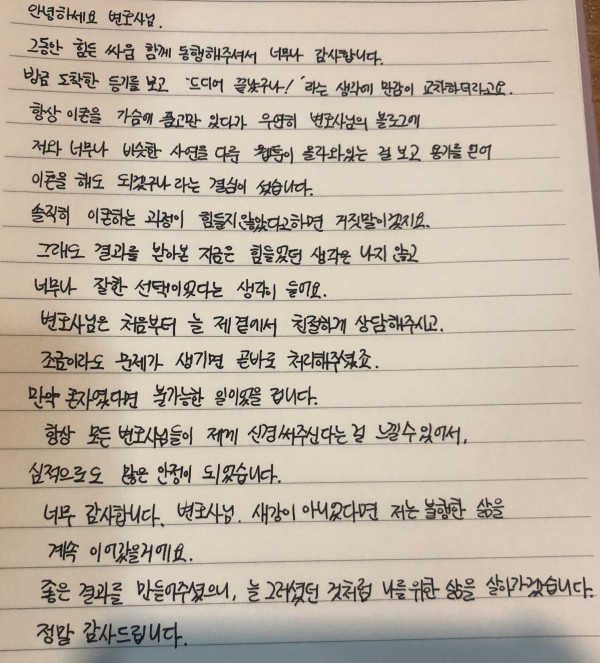 안녕하세요 변호사님.
그동안 힘든 싸움 함께 동행해주셔서 너무나 감사합니다.
방금 도착한 등기를 보고 "드디어 끝났구나!" 라는 생각에 만감이 교차하더라고요.
항상 이혼을 가슴에 품고만 있다가 우연히 변호사님의 블로그에
저와 너무나 비슷한 사연을 다룬 웹툰이 올라와있는 걸 보고 용기를 얻어
이혼을 해도 되겠구나 라는 결심이 섰습니다.
솔직히 이혼하는 과정이 힘들지 않았다고하면 거짓말이겠지요.
그래도 결과를 받아본 지금은 힘들었던 생각은 나지 않고
너무나 잘한 선택이었다는 생각이 들어요.
변호사님은 처음부터 늘 제 곁에서 친절하게 상담해주시고.
조금이라도 문제가 생기면 곧바로 처리해주셨죠.
만약 혼자였다면 불가능한 일이었을 겁니다.
항상 모든 변호사님들이 제게 신경써주신다는 걸 느낄수 있어서,
심적으로도 많은 안정이 되었습니다.
너무 감사합니다. 변호사님. 새강이 아니었다면 저는 불행한 삶을
계속 이어갔을거에요.
좋은 결과를 만들어주셨으니, 늘 그러셨던 것처럼 나를 위한 삶을 살아가겠습니다.
정말 감사드립니다.